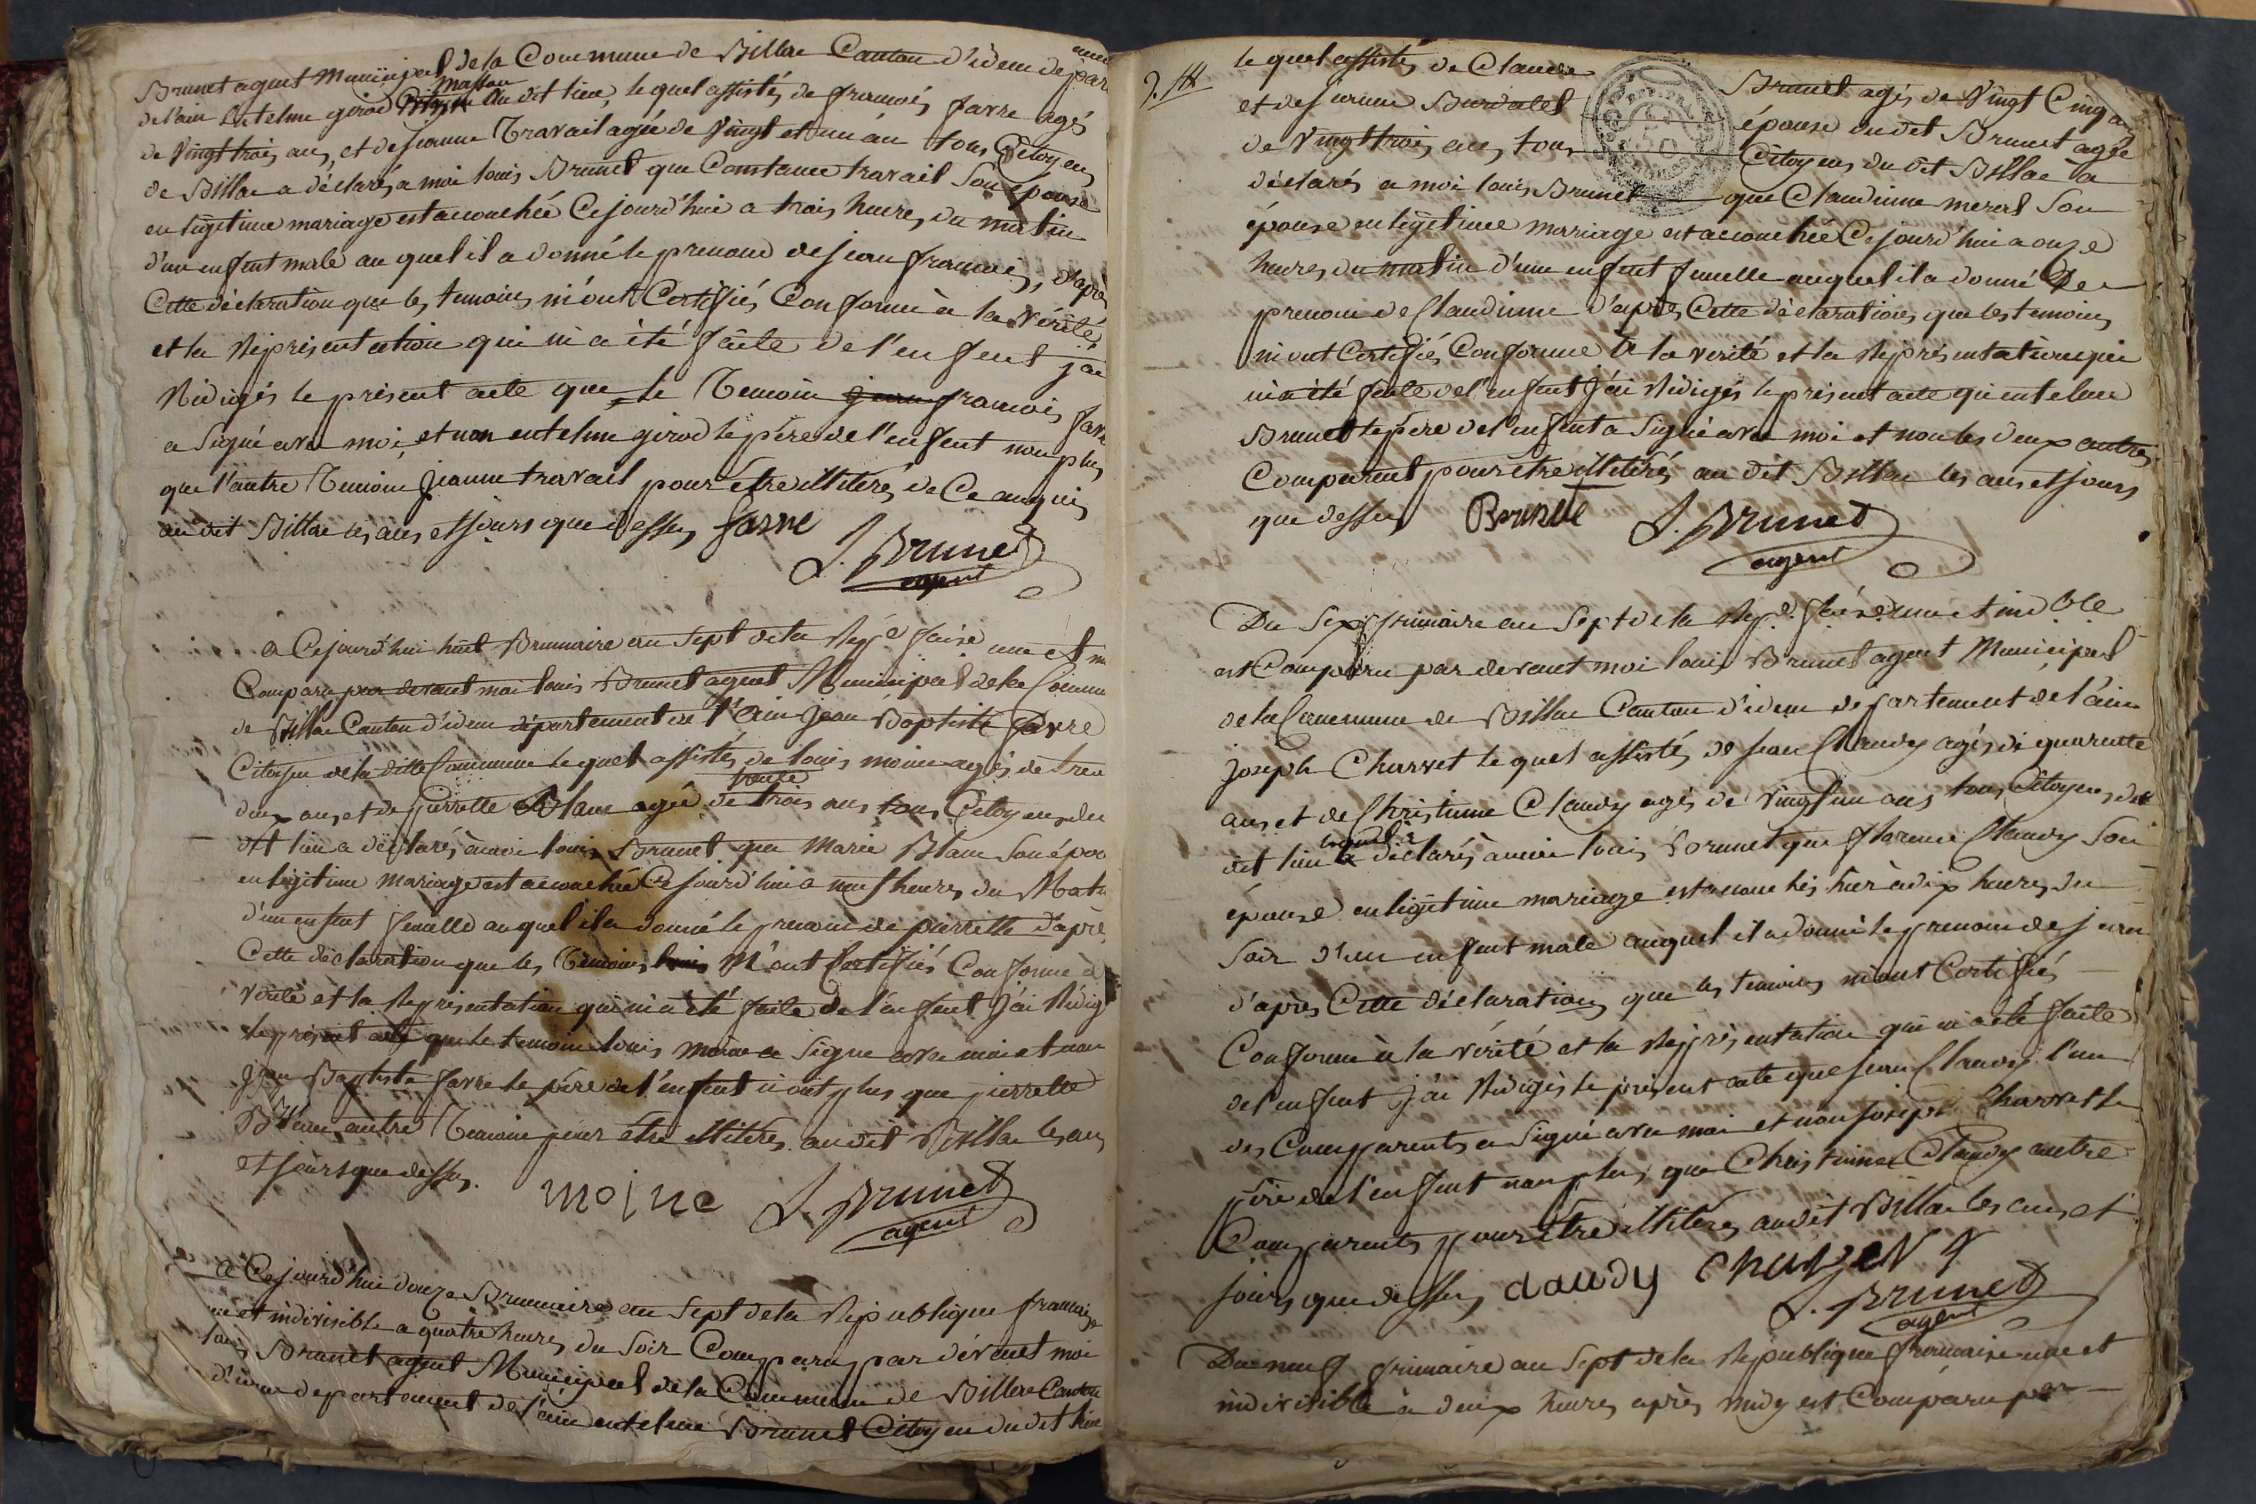 Brunet agent Municipal de la Commune de Billac Canton d'idem depar
de l'ain Entelme girod masson du dit lieu, le quel assistés de francois favre agés
de Vingt trois ans, et de jeanne Travail agée de Vingt et un an tous Citoyens
de Billac a déclarés a moi louis Brunet que Constance travail Son épouse
en legitime mariage est acouchée Cejourd'hui a trois heures du matin
d'un enfent male au quel il a donné le prenom de jean francois, d'après
Cette déclaration que les temoins m'ont Certifiés Conforme à la Vérité
et la Représentation qui m'a été faite de l'enfent jai
Rédigés le présent acte que le Temoin francois favre
a Signé avec moi, et non entelme girod le père de l'enfent non plus
que l'autre Temoin jeanne travail pour être illitérés de Ce anquis
au dit Billac les ans et jours que dessus favre
L. Brunet
agent
a Cejourd'hui huit Brumaire an Sept de la Rep.e faise une et in
Comparu par devant moi louis Brunet agent Municipal de la Commu
de Billac Canton d'idem département de l'Ain jean Baptiste favre
Citoyen de la ditte Commune le quel assistés de louis moine agés de tren
deux ans et de pierrette Blanc agée de trente trois ans tous Citoyens du
dit lieu a déclarés à moi louis Brunet que Marie Blanc Son épou
en legitime mariage est acouchée Cejourd'hui a neuf heures du Mati
d'un enfent femelle au quel il a donné le prenom de pierrette d'après
Cette déclaration que les Temoins M'ont Certifiés Conforme à
vérité et la Représentation qui m'a été faite de l'enfent J'ai Rédig
le présent acte que le temoin louis moine a Signe avec moi et non
jean Baptiste favre le père de l'enfent non plus que pierrette
Blanc autre Temoin pour être illitérés au dit Billac les ans
et jours que dessus. moine L. Brunet
agent
a Cejourd'hui douze Brumaire an Sept de la Republique francaise
une et indivisible a quatre heures du Soir Comparu par devant moi
louis Brunet agent Municipal de la Commune de Billac Canton
d'idem departement de l'ain entelme Brunet Citoyen du dit lieu
le quel assistés de Claude Brunet agés de Vingt Cinq ans
et de jeanne Burdalet épouse du dit Brunet agée
de Vingt trois ans, tous Citoyens du dit Billac a
déclarés a moi louis Brunet que Claudinne meral Son
épouse en legitime mariage est acouchée Cejourd'hui a onze
heures du matin d'une enfent femelle auquel il a donné le
prenom de Claudinne d'après Cette déclaration que les temoins
m'ont Certifiés Conforme à la verité et la Représentation qui
m'a été faite de l'enfent J'ai Rédigés le présent acte qu'entelme
Brunet le père de l'enfent a Signé avec moi et non les deux autres
Comparent pour être illitérés au dit Billac les ans et jours
que dessus Brunet L. Brunet
agent
Du Six frimaire an Sept de la Rep.e faise une et ind.ble
est Comparu par devant moi louis Brunet agent Municipal
de la Commune de Billac Canton d'idem departement de l'ain
joseph Charvet le quel assistés de jean Claudy agés de quarente
ans et de Christinne Claudy agés de Vingt un ans tous Citoyens du
dit lieu a déclarés à moi louis Brunet que florence Claudy Son
épouse en legitime mariage est acouchés hier à dix heures du
Soir d'un enfent male auquel il a donné le prenom de jean
d'après Cette déclaration que les temoins m'ont Certifiés
Conforme à la vérité et la Représentation qui m'a été faite
de l'enfent J'ai Rédigés le présent acte que jean Claudy l'un
des Comparents a Signé avec moi et non joseph Charvet le
père de l'enfent non plus que Christinne Claudy autre
Comparents pour être illitérés au dit Billac les ans et
jours que dessus, claudy Charvet
L. Brunet
agent
Du neuf frimaire an Sept de la République francaise une et
indivisible à deux heures après midy est Comparu par